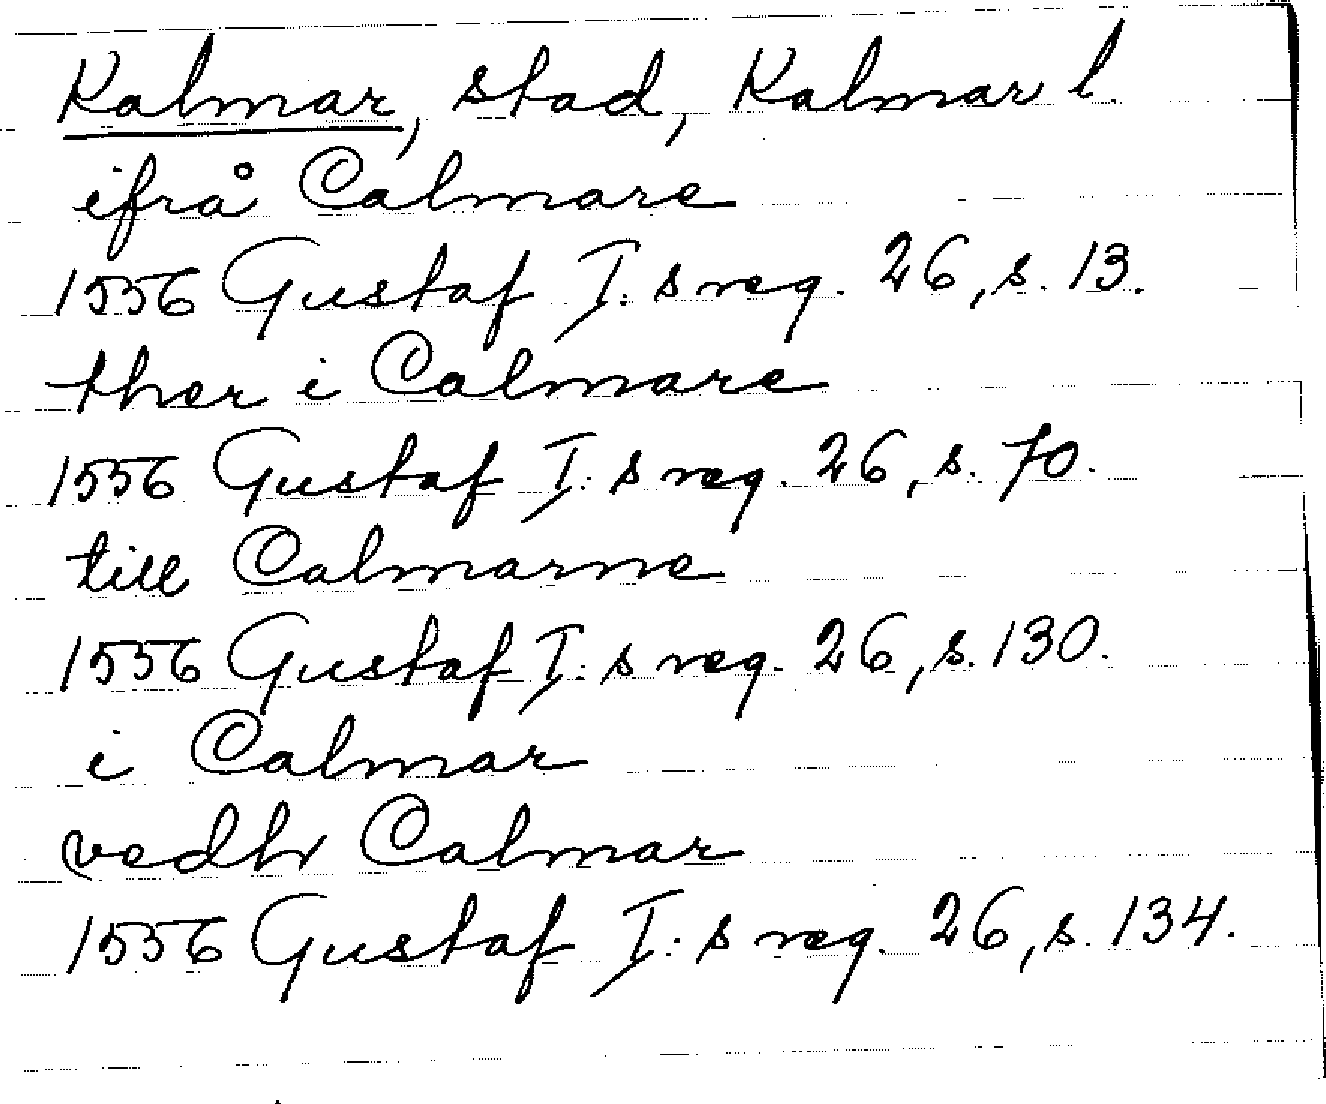 Kalmar, stad, Kalmar l.
ifrå Calmare
1556 Gustaf I:s reg. 26, s. 13.
ther i Calmare
1556 Gustaf I:s reg. 26, s. 70.
till Calmarne
1556 Gustaf I:s reg. 26, s. 130.
i Calmar
vedh Calmar
1556 Gustaf I:s reg. 26, s. 134.